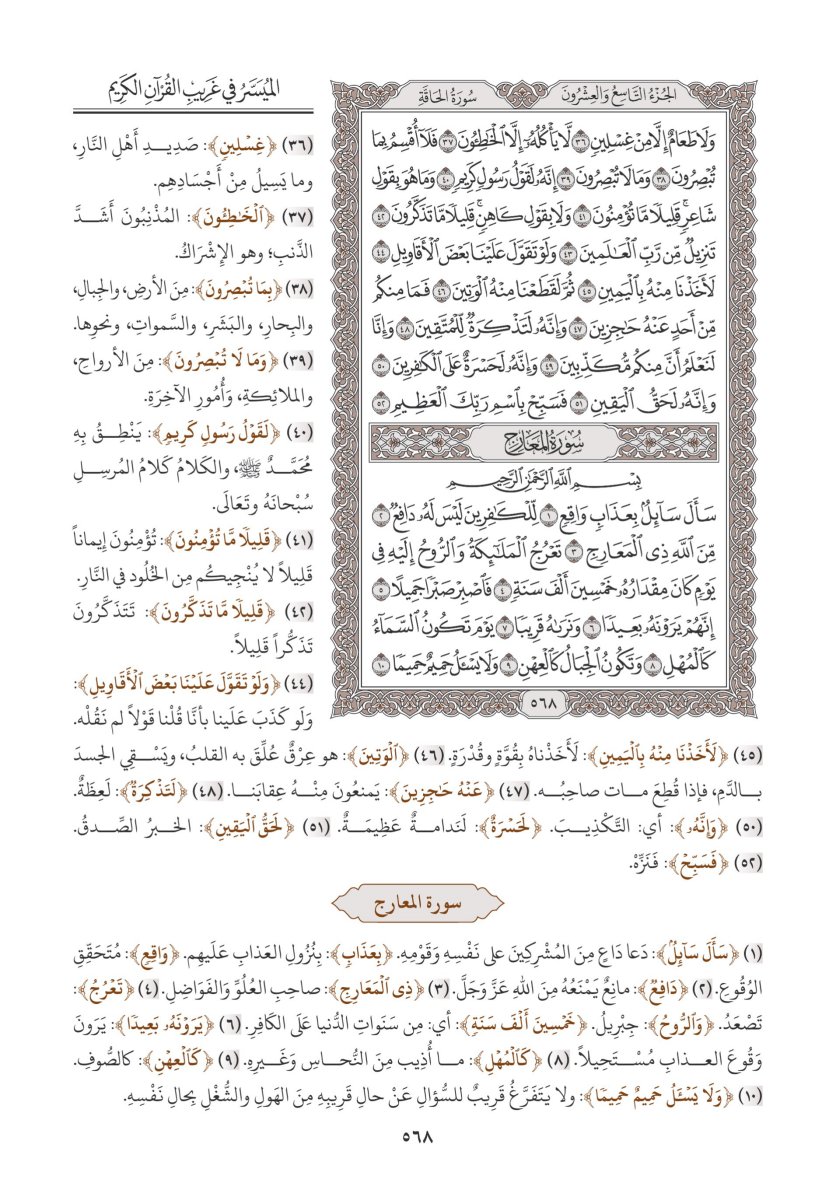 الميسر في غريب القرآن الكريم
الجزء التاسع والعشرون
سورة الحاقة
وَلَا طَعَامٌ إِلَّا مِنْ غِسْلِينٍ ٣٦ لَّا يَأْكُلُهُۥٓ إِلَّا ٱلْخَٰطِـُٔونَ ٣٧ فَلَآ أُقْسِمُ بِمَا
تُبْصِرُونَ ٣٨ وَمَا لَا تُبْصِرُونَ ٣٩ إِنَّهُۥ لَقَوْلُ رَسُولٍ كَرِيمٍ ٤٠ وَمَا هُوَ بِقَوْلِ
شَاعِرٍ ۚ قَلِيلًا مَّا تُؤْمِنُونَ ٤١ وَلَا بِقَوْلِ كَاهِنٍ ۚ قَلِيلًا مَّا تَذَكَّرُونَ ٤٢
تَنزِيلٌ مِّن رَّبِّ ٱلْعَٰلَمِينَ ٤٣ وَلَوْ تَقَوَّلَ عَلَيْنَا بَعْضَ ٱلْأَقَاوِيلِ ٤٤
لَأَخَذْنَا مِنْهُ بِٱلْيَمِينِ ٤٥ ثُمَّ لَقَطَعْنَا مِنْهُ ٱلْوَتِينَ ٤٦ فَمَا مِنكُم
مِّنْ أَحَدٍ عَنْهُ حَٰجِزِينَ ٤٧ وَإِنَّهُۥ لَتَذْكِرَةٌ لِّلْمُتَّقِينَ ٤٨ وَإِنَّا
لَنَعْلَمُ أَنَّ مِنكُم مُّكَذِّبِينَ ٤٩ وَإِنَّهُۥ لَحَسْرَةٌ عَلَى ٱلْكَٰفِرِينَ ٥٠
وَإِنَّهُۥ لَحَقُّ ٱلْيَقِينِ ٥١ فَسَبِّحْ بِٱسْمِ رَبِّكَ ٱلْعَظِيمِ ٥٢
سورة المعارج
بِسْمِ ٱللَّهِ ٱلرَّحْمَٰنِ ٱلرَّحِيمِ
سَأَلَ سَآئِلٌۢ بِعَذَابٍ وَاقِعٍ ١ لِّلْكَٰفِرِينَ لَيْسَ لَهُۥ دَافِعٌ ٢
مِّنَ ٱللَّهِ ذِى ٱلْمَعَارِجِ ٣ تَعْرُجُ ٱلْمَلَٰٓئِكَةُ وَٱلرُّوحُ إِلَيْهِ فِى
يَوْمٍ كَانَ مِقْدَارُهُۥ خَمْسِينَ أَلْفَ سَنَةٍ ٤ فَٱصْبِرْ صَبْرًا جَمِيلًا ٥
إِنَّهُمْ يَرَوْنَهُۥ بَعِيدًا ٦ وَنَرَىٰهُ قَرِيبًا ٧ يَوْمَ تَكُونُ ٱلسَّمَآءُ
كَٱلْمُهْلِ ٨ وَتَكُونُ ٱلْجِبَالُ كَٱلْعِهْنِ ٩ وَلَا يَسْـَٔلُ حَمِيمٌ حَمِيمًا ١٠
٥٦٨
(٣٦) ﴿غِسْلِينٍ﴾: صَدِيدِ أَهْلِ النَّارِ،
وما يَسِيلُ مِنْ أَجْسَادِهِم.
(٣٧) ﴿ٱلْخَٰطِـُٔونَ﴾: المُذْنِبُونَ أَشَدَّ
الذَّنبِ؛ وهو الإِشْرَاكُ.
(٣٨) ﴿بِمَا تُبْصِرُونَ﴾: مِنَ الأرضِ، والجِبالِ،
والبِحارِ، والبَشَرِ، والسَّمواتِ، ونحوِها.
(٣٩) ﴿وَمَا لَا تُبْصِرُونَ﴾: مِنَ الأرواحِ،
والملائِكةِ، وأُمُورِ الآخِرَةِ.
(٤٠) ﴿لَقَوْلُ رَسُولٍ كَرِيمٍ﴾: يَنْطِقُ بِهِ
مُحَمَّدٌ ﷺ، والكَلامُ كَلامُ المُرسِلِ
سُبْحَانَهُ وتَعَالَى.
(٤١) ﴿قَلِيلًا مَّا تُؤْمِنُونَ﴾: تُؤْمِنُونَ إِيماناً
قَلِيلاً لا يُنْجِيكُم مِن الخُلُودِ في النَّارِ.
(٤٢) ﴿قَلِيلًا مَّا تَذَكَّرُونَ﴾: تَتَذَكَّرُونَ
تَذَكُّراً قَلِيلاً.
(٤٤) ﴿وَلَوْ تَقَوَّلَ عَلَيْنَا بَعْضَ ٱلْأَقَاوِيلِ﴾:
وَلَو كَذَبَ عَلَينا بأنَّا قُلْنا قَوْلاً لم نَقُلْه.
(٤٥) ﴿لَأَخَذْنَا مِنْهُ بِٱلْيَمِينِ﴾: لَأَخَذْناهُ بِقُوَّةٍ وقُدْرَةٍ. (٤٦) ﴿ٱلْوَتِينَ﴾: هو عِرْقٌ عُلِّقَ به القلبُ، ويَسْقِي الجسدَ
بالدَّمِ، فإذا قُطِعَ مات صاحِبُه. (٤٧) ﴿عَنْهُ حَٰجِزِينَ﴾: يَمنعُونَ مِنْهُ عِقابَنا. (٤٨) ﴿لَتَذْكِرَةٌ﴾: لَعِظَةٌ.
(٥٠) ﴿وَإِنَّهُۥ﴾: أي: التَّكْذِيبَ. ﴿لَحَسْرَةٌ﴾: لَنَدامةٌ عَظِيمَةٌ. (٥١) ﴿لَحَقُّ ٱلْيَقِينِ﴾: الخبرُ الصِّدقُ.
(٥٢) ﴿فَسَبِّحْ﴾: فَنَزِّهْ.
سورة المعارج
(١) ﴿سَأَلَ سَآئِلٌۢ﴾: دَعا دَاعٍ مِنَ المُشْرِكِينَ على نَفْسِهِ وقَوْمِهِ. ﴿بِعَذَابٍ﴾: بِنُزُولِ العَذابِ عَلَيهِم. ﴿وَاقِعٍ﴾: مُتَحَقِّقِ
الوُقُوعِ. (٢) ﴿دَافِعٌ﴾: مانِعٌ يَمْنَعُهُ مِنَ اللهِ عَزَّ وَجَلَّ. (٣) ﴿ذِى ٱلْمَعَارِجِ﴾: صاحِبِ العُلُوِّ وَالفَوَاضِلِ. (٤) ﴿تَعْرُجُ﴾:
تَصْعَدُ. ﴿وَٱلرُّوحُ﴾: جِبْرِيلُ. ﴿خَمْسِينَ أَلْفَ سَنَةٍ﴾: أي: مِن سَنَواتِ الدُّنيا عَلَى الكَافِرِ. (٦) ﴿يَرَوْنَهُۥ بَعِيدًا﴾: يَرَونَ
وَقُوعَ العذابِ مُسْتَحِيلاً. (٨) ﴿كَٱلْمُهْلِ﴾: ما أُذِيب مِنَ النُّحاسِ وَغَيرِهِ. (٩) ﴿كَٱلْعِهْنِ﴾: كالصُّوفِ.
(١٠) ﴿وَلَا يَسْـَٔلُ حَمِيمٌ حَمِيمًا﴾: ولا يَتَفَرَّغُ قَرِيبٌ للسُّؤالِ عَنْ حالِ قَرِيبِهِ مِنَ الهَولِ والشُّغْلِ بِحالِ نَفْسِهِ.
٥٦٨